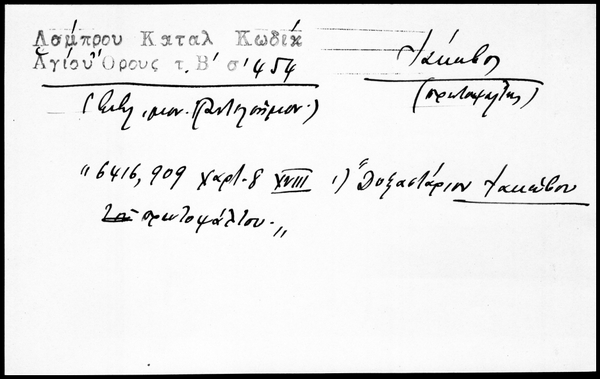 Λάμπρου Καταλ Κωδίκ
Ἁγίου Ὄρους τ. Β' σ' 454
Ἰάκωβος
(πρωτοψάλτης)
(Βιβλ. μον. Παντελεήμον.)
„ 6416, 909 χαρτ. 8 XVIII 1) "Δοξαστάριον Ἰακώβου
πρωτοψάλτου. „